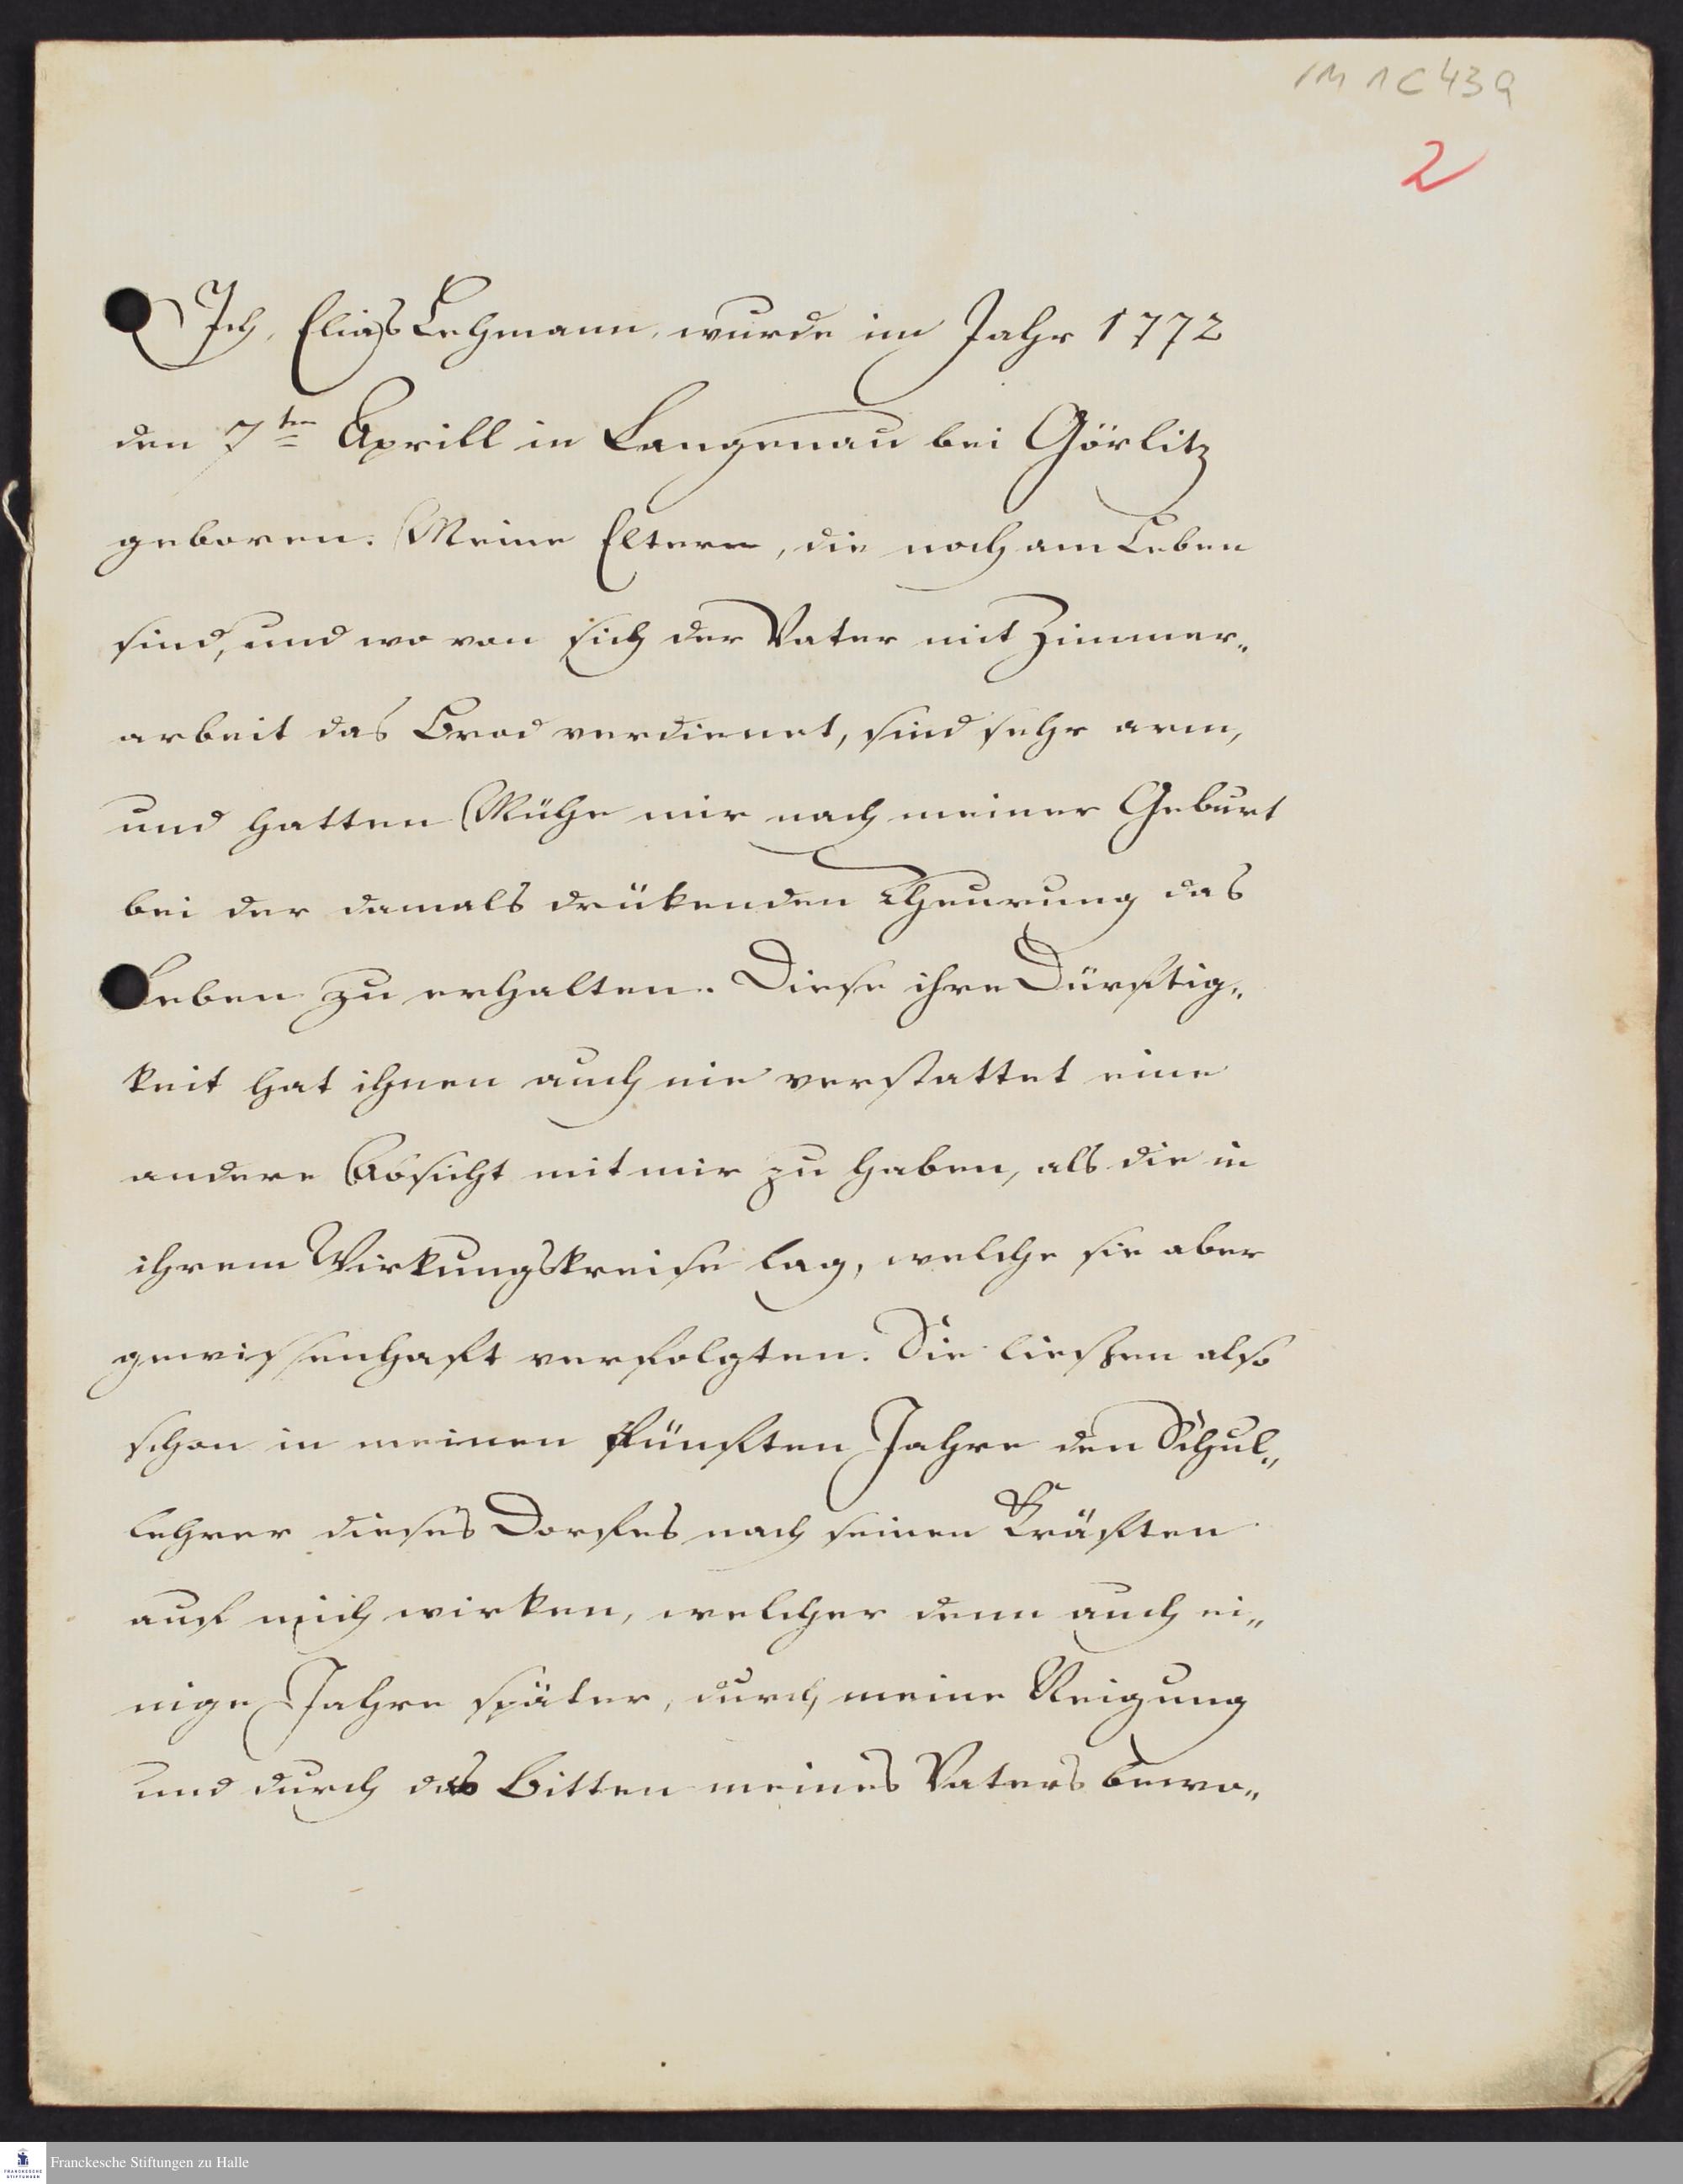 1M 1C 43a
2
Ich, Elias Lehmann, wurde im Jahr 1772
den 7ten Aprill in Langenau bei Görlitz
geboren. Meine Eltern, die noch am Leben
sind, und wo von sich der Vater mit Zimmer„
arbeit das Brod verdienet, sind sehr arm,
und hatten Mühe mir nach meiner Geburt
bei der damals drükenden Theurung das
Leben zu erhalten. Diese ihre Dürftig„
keit hat ihnen auch nie verstattet eine
andere Absicht mit mir zu haben, als die in
ihrem Wirkungskreise lag, welche sie aber
gewissenhaft verfolgten. Sie liessen also
schon in meinen fünften Jahre den Schul„
lehrer dieses Dorfes nach seinen Kräften
auf mich wirken, welcher denn auch ei„
nige Jahre später, durch meine Neigung
und durch das Bitten meines Vaters bewo„
FRANCKESCHE
STIFTUNGEN
Franckesche Stiftungen zu Halle